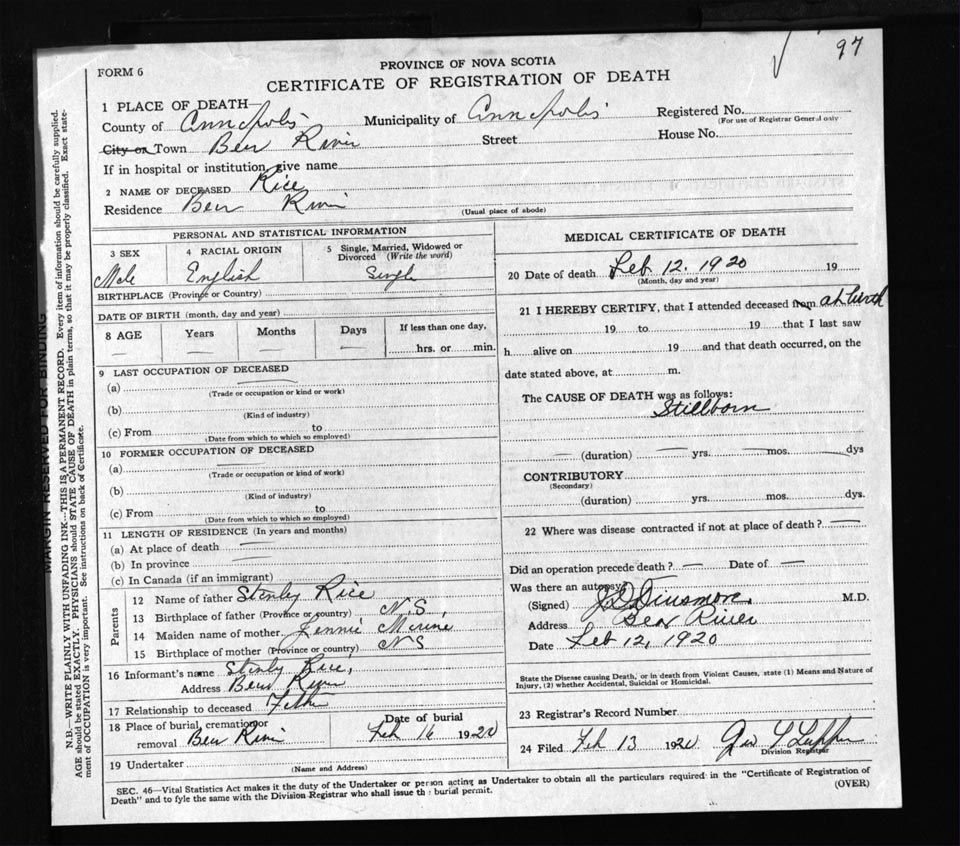 97
FORM 6
PROVINCE OF NOVA SCOTIA
CERTIFICATE OF REGISTRATION OF DEATH
1 PLACE OF DEATH—
County of Annapolis Municipality of Annapolis Registered No.
(For use of Registrar General only
City or Town Bear River Street House No.
If in hospital or institution, give name
2 NAME OF DECEASED Rice
Residence Bear River
(Usual place of abode)
PERSONAL AND STATISTICAL INFORMATION
3 SEX 4 RACIAL ORIGIN 5 Single, Married, Widowed or Divorced (Write the word)
Male English Single
BIRTHPLACE (Province or Country)
DATE OF BIRTH (month, day and year)
8 AGE Years Months Days If less than one day,
— — — — hrs. or min.
9 LAST OCCUPATION OF DECEASED
(a)
(Trade or occupation or kind or work)
(b)
(Kind of industry)
(c) From to
(Date from which to which so employed)
10 FORMER OCCUPATION OF DECEASED
(a)
(Trade or occupation or kind of work)
(b)
(Kind of industry)
(c) From to
(Date from which to which so employed)
11 LENGTH OF RESIDENCE (In years and months)
(a) At place of death —
(b) In province —
(c) In Canada (if an immigrant)
Parents
12 Name of father Stanly Rice
13 Birthplace of father (Province or country) N.S.
14 Maiden name of mother Jennie
15 Birthplace of mother (Province or country) N S
16 Informant's name Stanly Rice,
Address Bear River
17 Relationship to deceased Father
18 Place of burial, cremation or removal Bear River
Date of burial
Feb 16 1920
19 Undertaker
(Name and Address)
MEDICAL CERTIFICATE OF DEATH
20 Date of death Feb 12, 1920 19
(Month, day and year)
21 I HEREBY CERTIFY, that I attended deceased from at birth
19 to 19 that I last saw
h alive on 19 and that death occurred, on the
date stated above, at m.
The CAUSE OF DEATH was as follows:
Stillborn
— (duration) — yrs. — mos. — dys
CONTRIBUTORY
(Secondary)
(duration) yrs. mos. dys.
22 Where was disease contracted if not at place of death? —
Did an operation precede death? — Date of —
Was there an autopsy?
(Signed) Dinsmore, M.D.
Address Bear River
Date Feb 12, 1920
State the Disease causing Death, or in death from Violent Causes, state (1) Means and Nature of
Injury, (2) whether Accidental, Suicidal or Homicidal.
23 Registrar's Record Number
24 Filed Feb 13 1920
Division Registrar
SEC. 46—Vital Statistics Act makes it the duty of the Undertaker or person acting as Undertaker to obtain all the particulars required in the "Certificate of Registration of
Death" and to fyle the same with the Division Registrar who shall issue the burial permit.
(OVER)
MARGIN RESERVED FOR BINDING
N.B.—WRITE PLAINLY WITH UNFADING INK—THIS IS A PERMANENT RECORD. Every item of information should be carefully supplied.
AGE should be stated EXACTLY. PHYSICIANS should STATE CAUSE OF DEATH in plain terms, so that it may be properly classified. Exact state-
ment of OCCUPATION is very important. See instructions on back of Certificate.